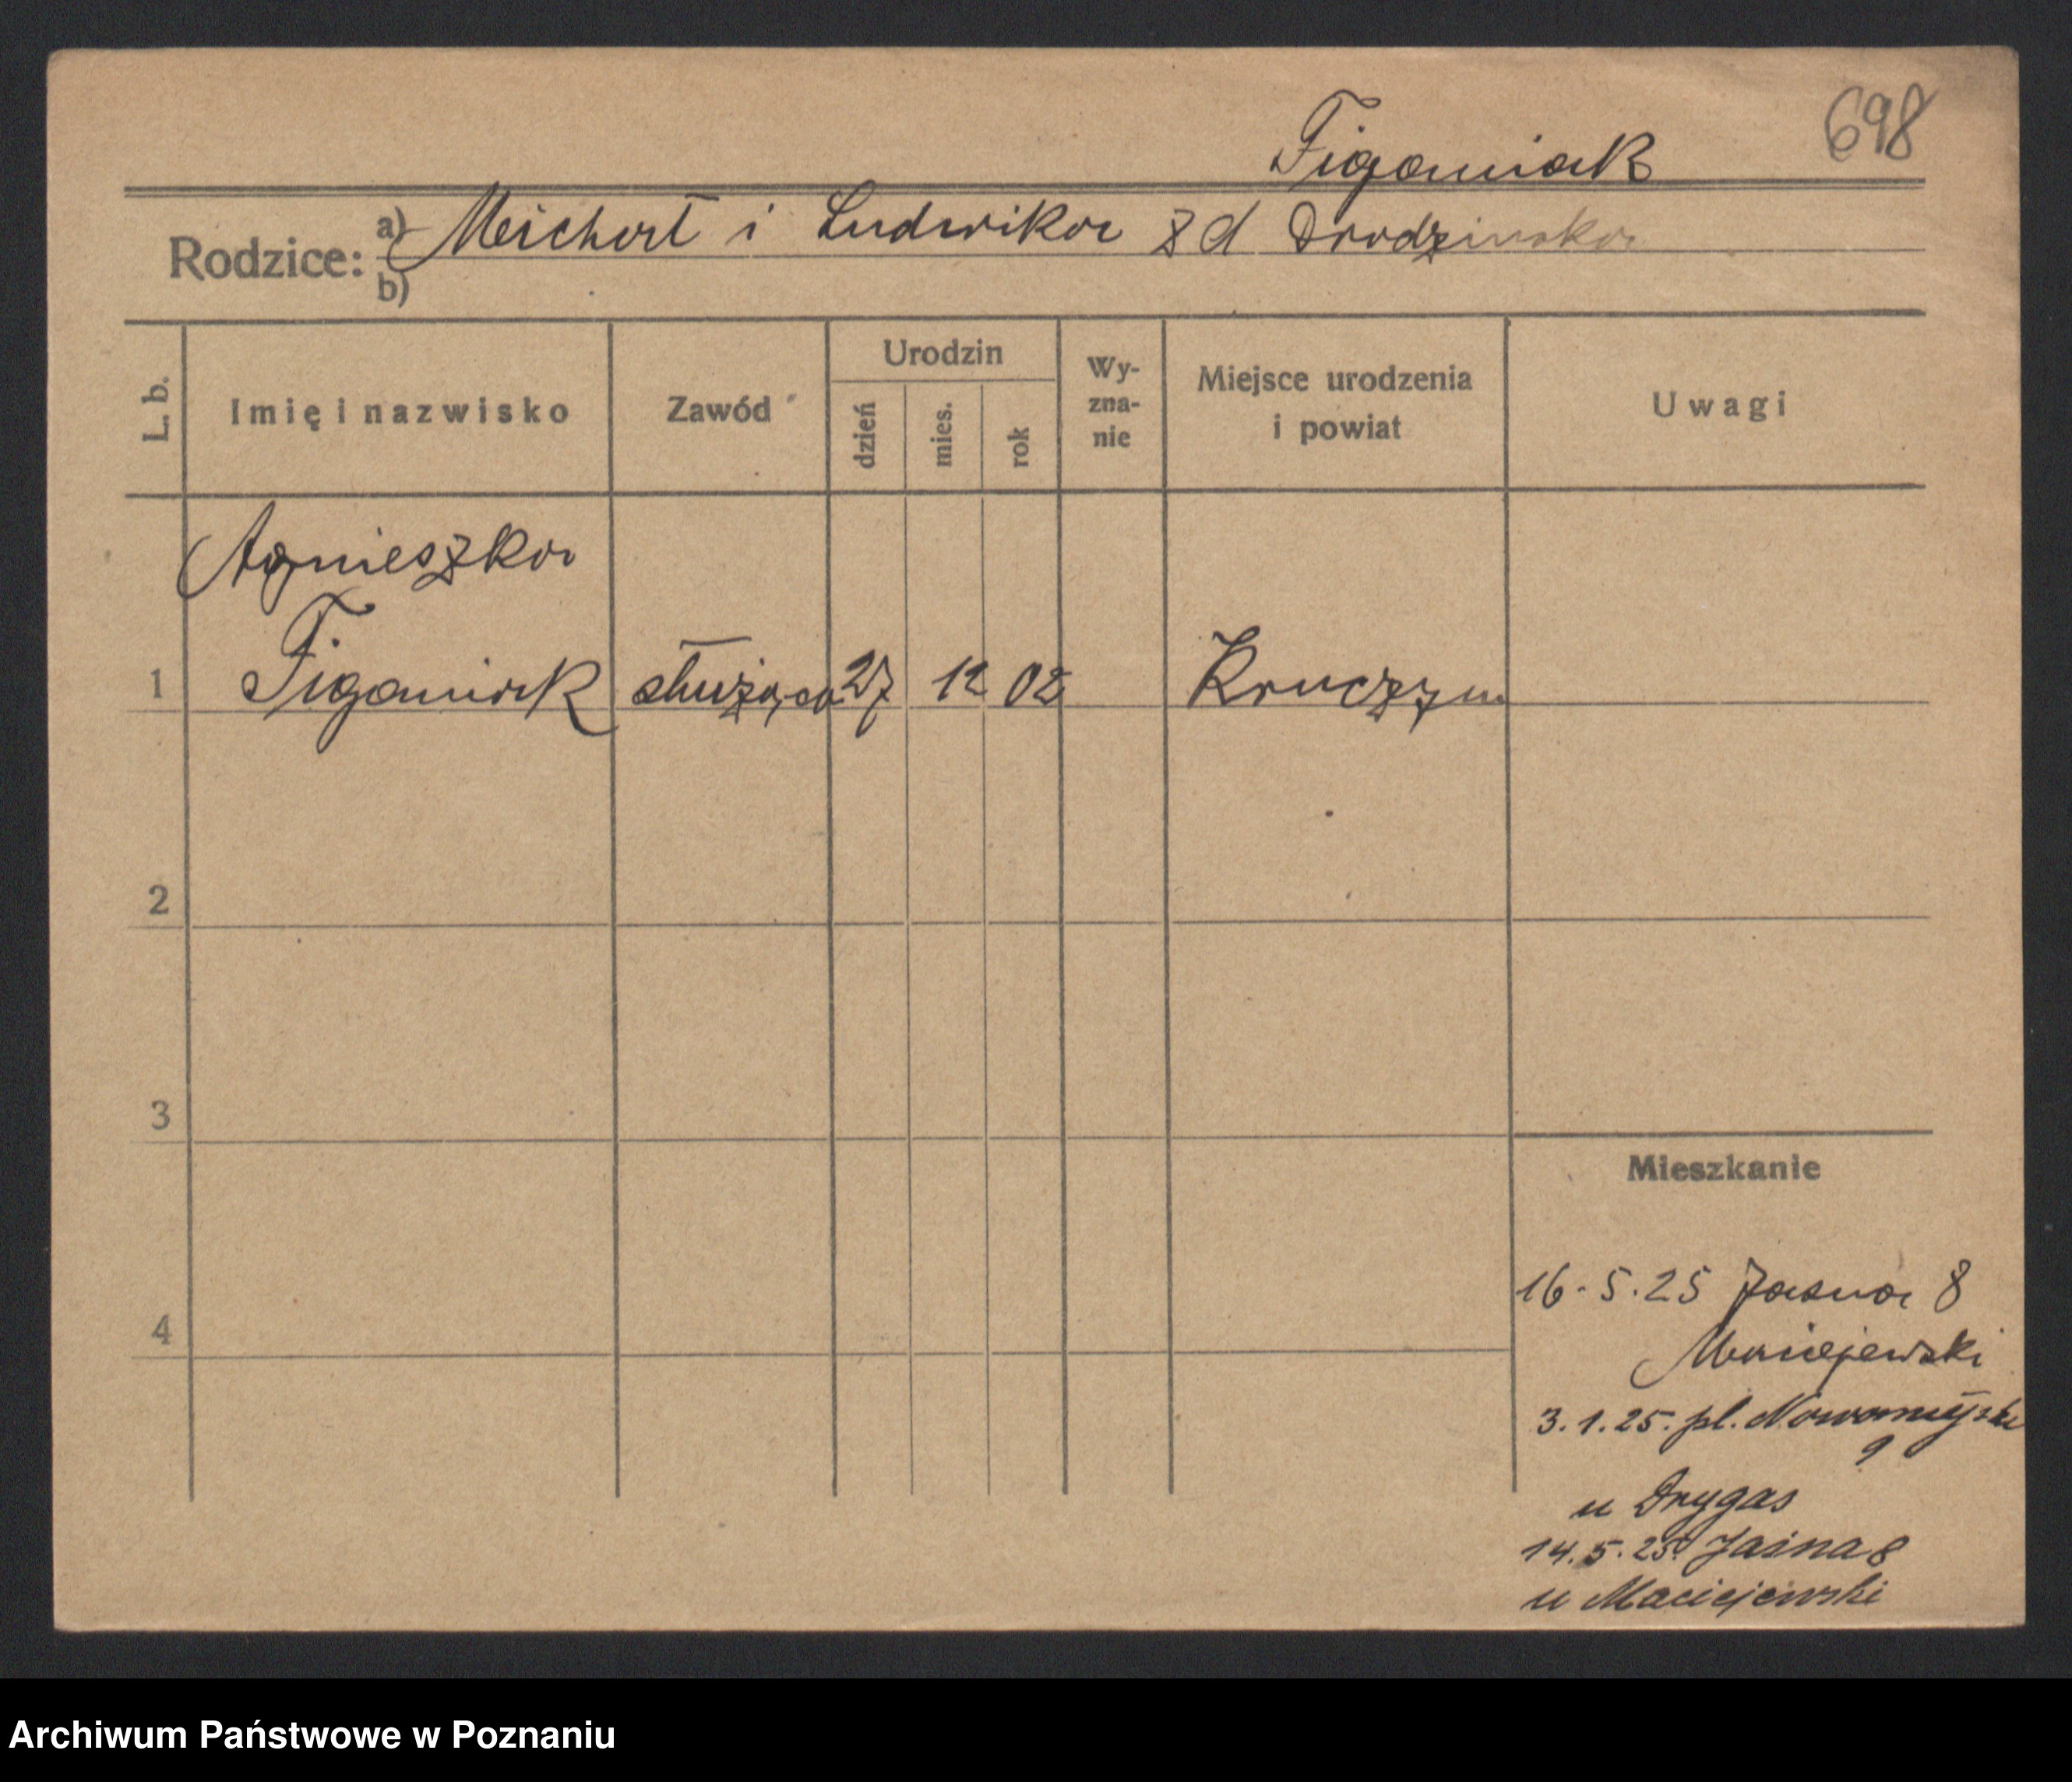 698
Figaniak
Rodzice: a) Meichort i Ludwika z d Drodzinska
b)
L. b.
Imię i nazwisko
Zawód
Urodzin
dzień
mies.
rok
Wy-
zna-
nie
Miejsce urodzenia
i powiat
Uwagi
Agnieszka
1 Figaniak służąca 27 12 02 Kruczyn
2
3
4
Mieszkanie
16.5.25 Jasna 8
Maciejewski
3.1.25. pl. Nowomiejski
9
u Drygas
14.5.25. Jasna 8
u Maciejewski
Archiwum Państwowe w Poznaniu